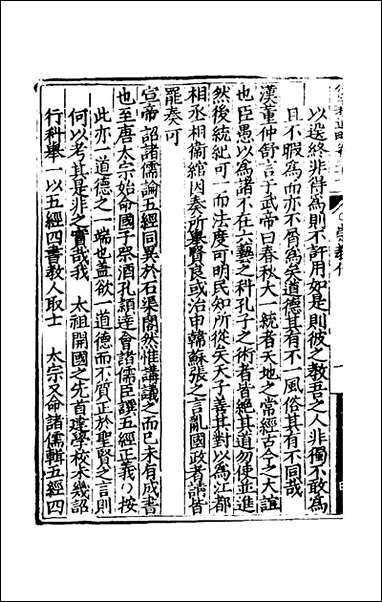 以选終非得爲則不許用如是則彼之教吾之人非獨不敢爲
且不暇爲而亦不屑爲矣道德其有不一風俗其有不同哉
漢董仲舒言于武帝曰春秋大一統者天地之常經古今之大誼
也臣愚以爲諸不在六藝之科孔子之術者皆絕其道勿使並進
然後統紀可一而法度可明民知所從矣天子善其對以爲江都
相丞相衛綰因奏所舉賢良或治申韓蘇張之言亂國政者請皆
罷奏可
宣帝詔諸儒論五經同異於石渠閣然惟講議之而已未有成書
也至唐太宗始命國子祭酒孔穎達會諸儒臣譔五經正義○按
此亦一道德之一端也蓋欲一道德而不質正於聖賢之言則
何以考其是非之實哉我 太祖開國之先首建學校未幾詔
行科舉一以五經四書教人取士 太宗又命諸儒輯五經四